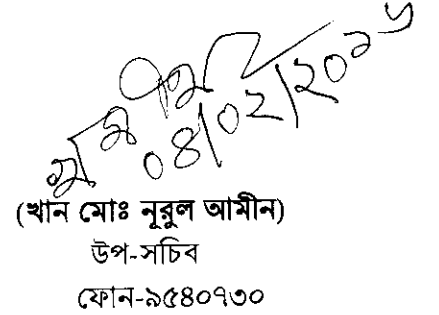 ০৪/০২/২০১৬
(খান মোঃ নূরুল আমীন)
উপ-সচিব
ফোন-৯৫৪০৭৩০